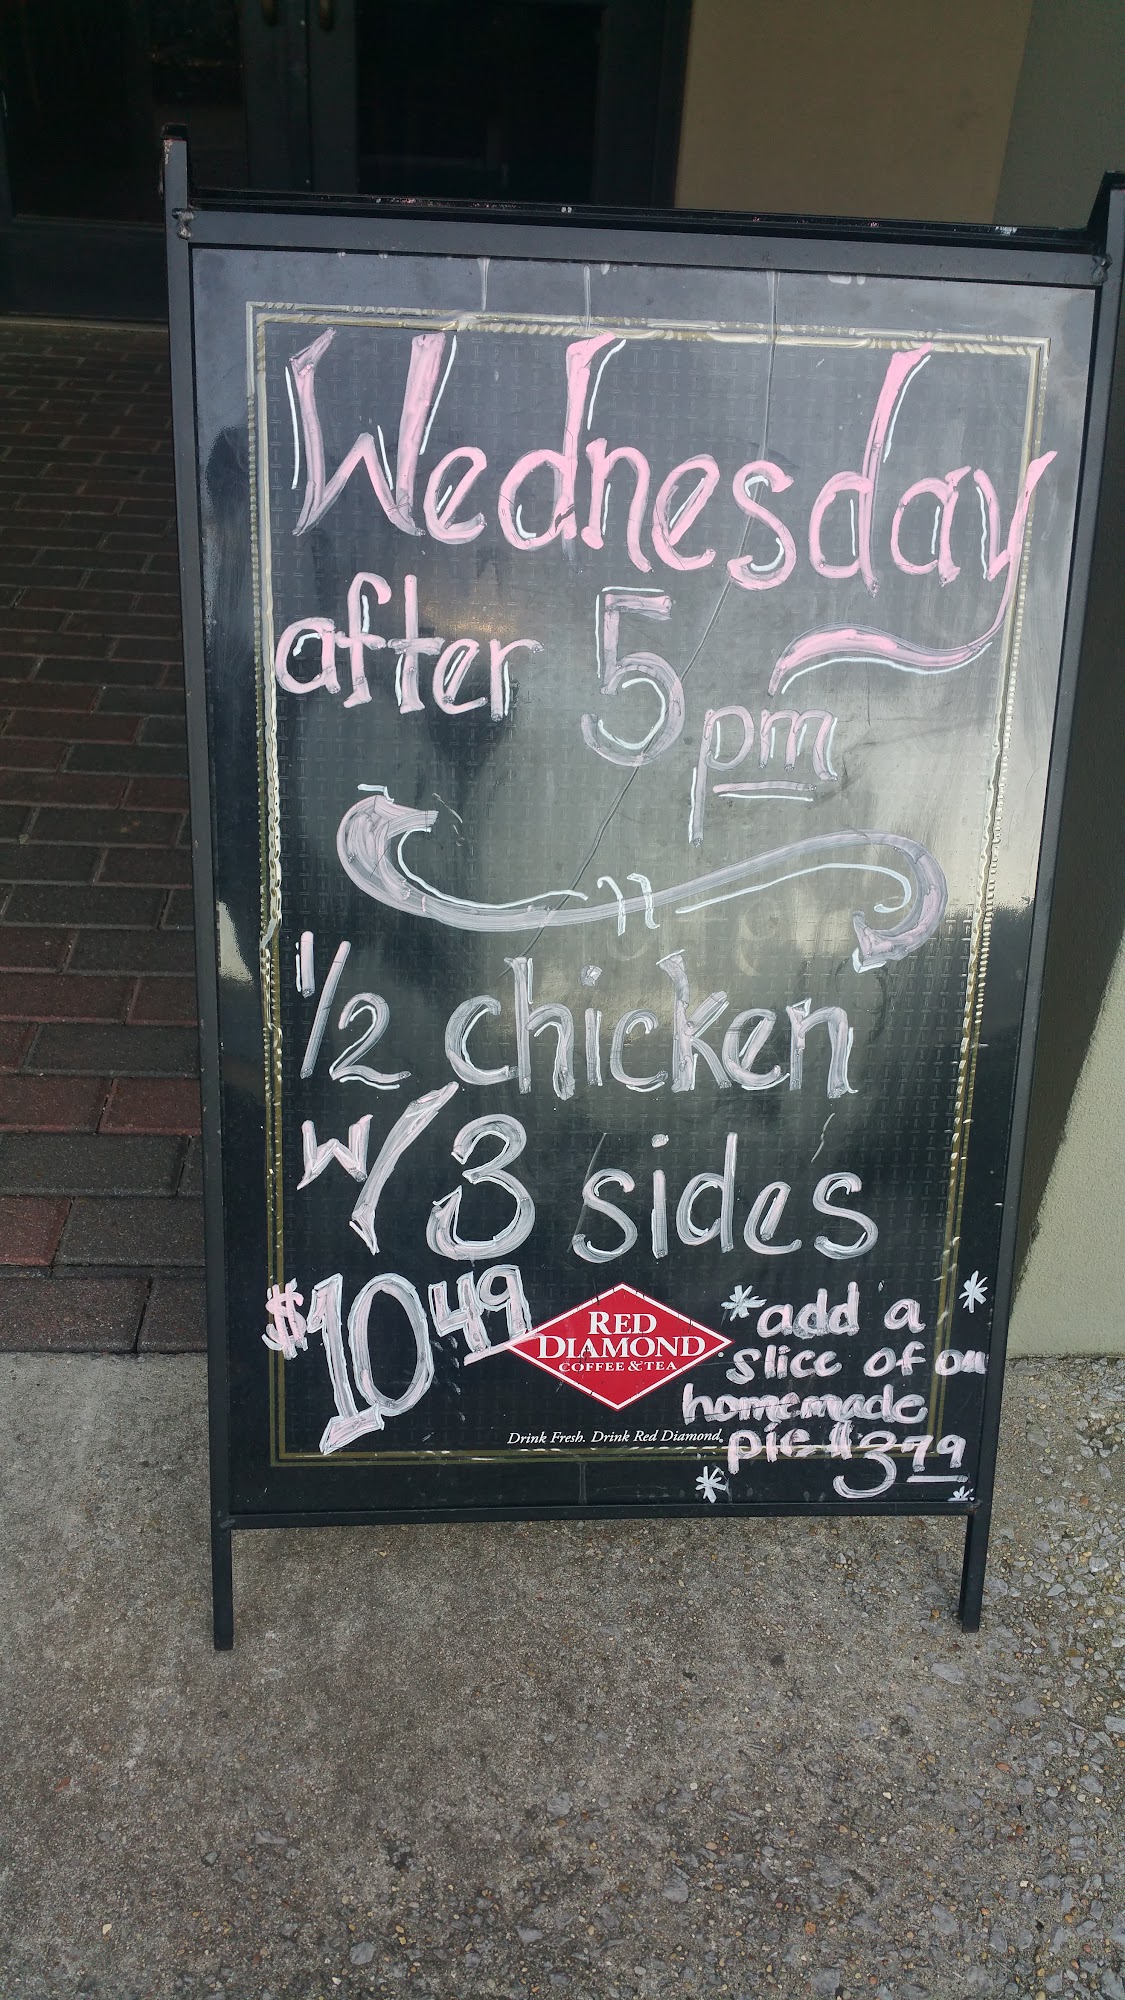 Wednesday
after 5 pm
1/2 chicken
w/ 3 sides
$10.49
RED
DIAMOND
COFFEE & TEA
Drink Fresh. Drink Red Diamond.
*add a *
slice of our
homemade
pie $3.79
* *